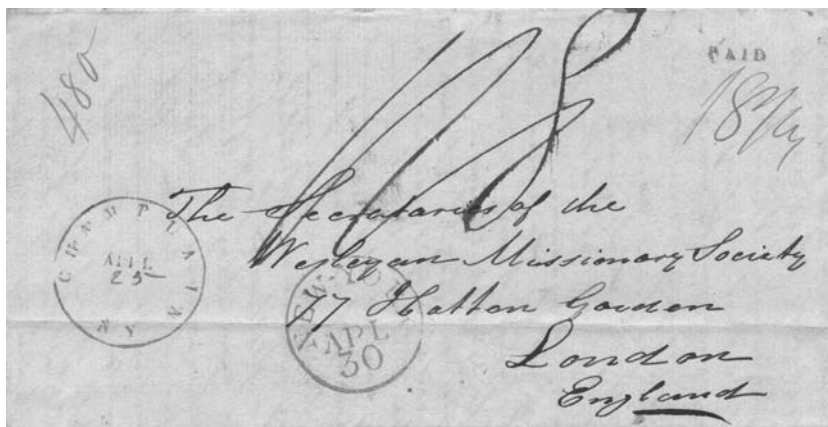 480
PAID
18 3/4
1/8
CHAMPLAIN
APL
25
NY
The Secretaries of the
Wesleyan Missionary Society
77 Hatton Garden
London
England
NEW YORK
APL
30